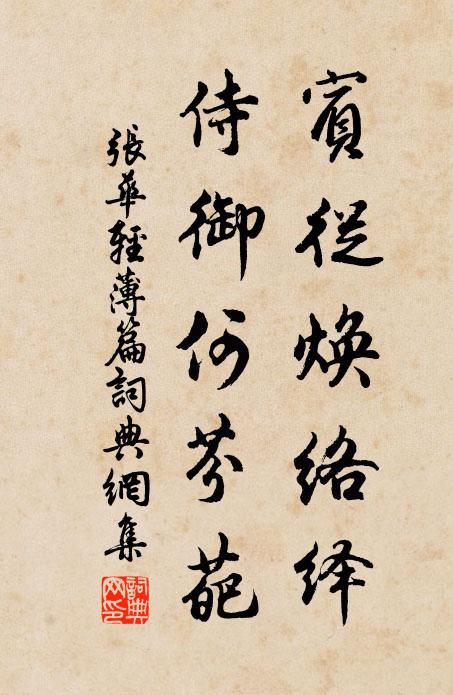 賓從煥絡绎
侍御何芬葩
張華輕薄篇詞典網集
詞典網印